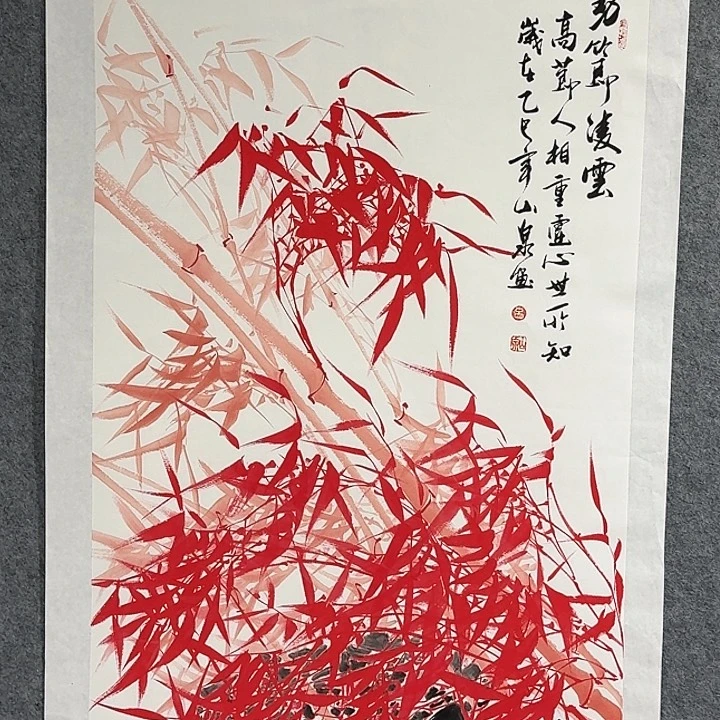 劲节凌雲
高节人相重虚心世所知
歲在乙巳年山泉画